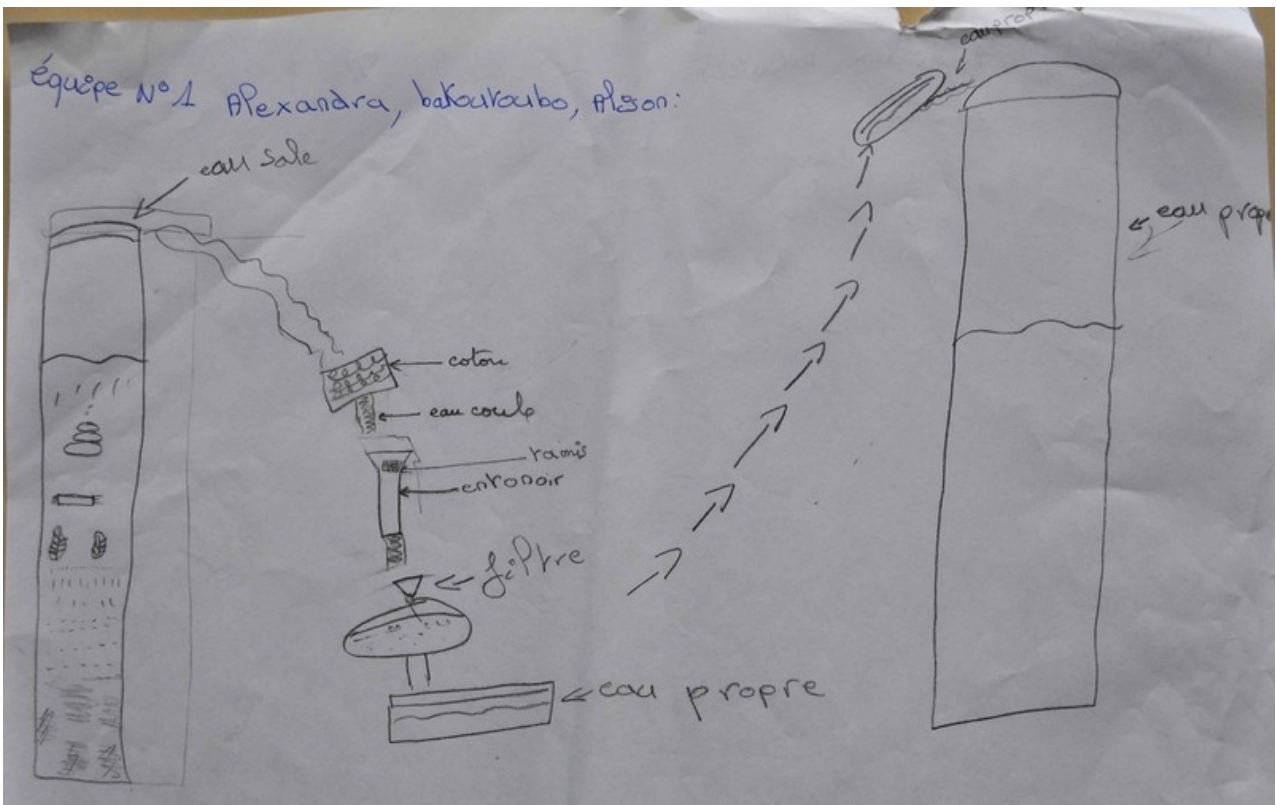 équipe N° 1 Alexandra, bakouroubo, Alson:
eau sale
coton
eau coule
tamis
entonoir
filtre
eau propre
eau prop
eau prope